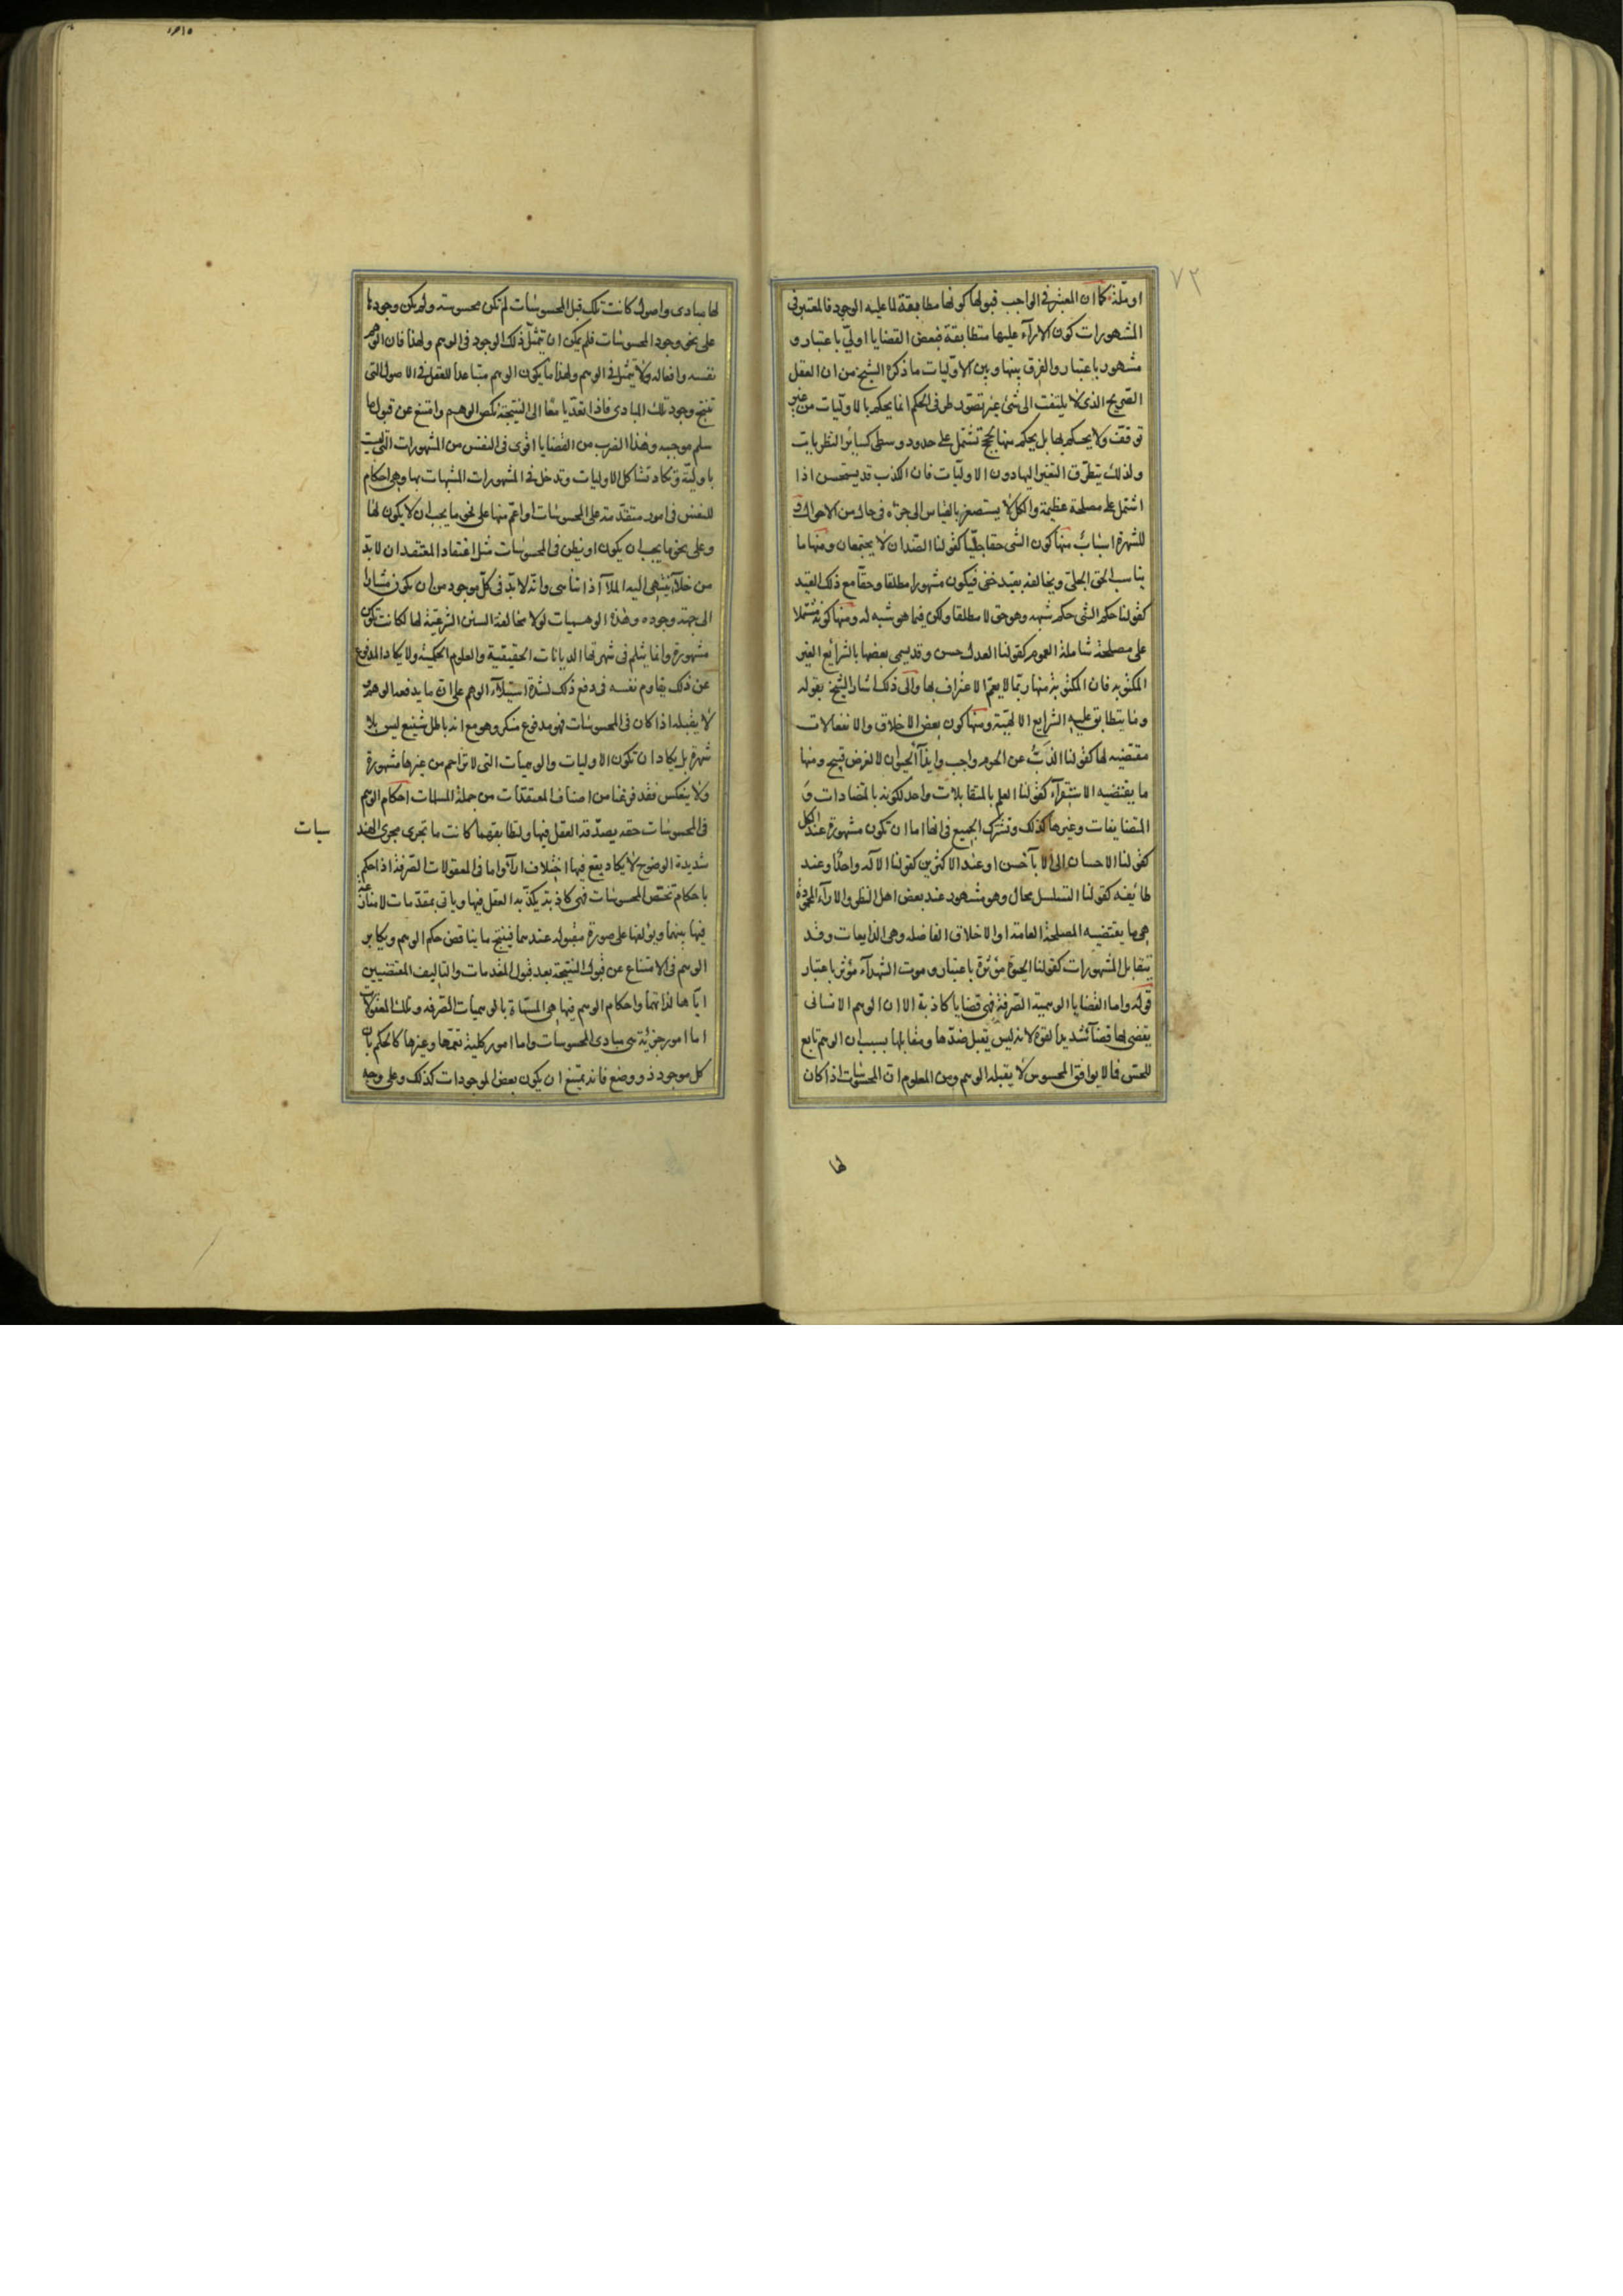 ٧٢
او ملّة كما ان المعتبر فى الواجب قبولها كونها مطابقة لما عليه الوجود فالمعتبر فى
المشهورات كون الاراء عليها متطابقة فبعض القضايا اولىّ باعتبار و
مشهور باعتبار والفرق بينها وبين الاوليات ما ذكره الشيخ من ان العقل
الصّريح الذى لا يلتفت الى شئ غير تصوّر طرفى الحكم انما يحكم بالاوليات من غير
توقف ولا يحكم بها بل يحكم منها بحجج تشتمل على حدود وسطى كسائر النظريات
ولذلك يتطرّق التغير اليها دون الاوليّات فان الكذب قد يستحسن اذا
اشتمل على مصلحة عظيمة والكل لا يستصغر بالقياس الى جزءه فى حال من الاحوال و
للشهرة اسباب منها كون الشئ حقا جليّا كقولنا الضدان لا يجتمعان ومنها ما
يناسب الحق الجلى ويخالفه بقيد خفى فيكون مشهورا مطلقا وحقا مع ذلك القيد
كقولنا حكم الشئ حكم شبهه وهو حق لا مطلقا ولكن فيما هو شبه له ومنها كونه مشتملا
على مصلحة شاملة للعموم كقولنا العدل حسن وقد يسمى بعضها بالشرائع الغير
المكتوبه فان المكتوبة منها ربّما لا يعمّ الاعتراف بها والى ذلك اشار الشيخ بقوله
وما يتطابق عليه الشرايع الالهيّة ومنها كون بعض الاخلاق والانفعالات
مقتضيه لها كقولنا الذبّ عن الحرم واجب وايذآ الحيوان لا لغرض قبيح ومنها
ما يقتضيه الاستقرآء كقولنا العلم بالمتقابلات واحد لكونه بالمتضادات و
المتضايفات وغيرها كذلك وتشترك الجميع فى انها اما ان تكون مشهورة عند الكل
كقولنا الاحسان الى الابآ حسن او عند الاكثرين كقولنا الاله واحد او عند
طايفه كقولنا التسلسل محال وهو مشهور عند بعض اهل النظر والاراء المحمودة
هى ما يقتضيه المصلحة العامة او الاخلاق الفاضله وهى الذايعات وقد
يتقابل المشهورات كقولنا الحيوة مؤثرة باعتبار وموت الشهدآء مؤثر باعتبار
قوله واما القضايا الوهمية الصّرفة فهى قضايا كاذبة الا ان الوهم الانسانى
يقضى بها قضآ شديد القوة لانه ليس يقبل ضدّها ومقابلها بسبب ان الوهم تابع
للحس فما لا يوافق المحسوس لا يقبله الوهم ومن المعلوم ان المحسوسات اذا كان
لها
لها مبادى واصول كانت تلك قبل المحسوسات لم تكن محسوسة ولم يكن وجودها
على نحو وجود المحسوسات فلم يمكن ان يتمثّل ذلك الوجود فى الوهم ولهذا فان الوهم
نفسه وافعاله لا يتمثل فى الوهم ولهذا ما يكون الوهم مساعدا للعقل فى الاصول التى
تنتج وجود تلك المبادى فاذا تعدّيا معا الى النتيجة نكص الوهم وامتنع عن قبول ما
سلم موجبه وهذا الضرب من القضايا اقوى فى النفس من المشهورات التى ليست
باوليّة وتكاد تشاكل الاوليات وتدخل فى المشهورات المشبهات بها وهى احكام
للنفس فى امور متقدّمة على المحسوسات او اعم منها على نحو ما يجب ان لا يكون لها
وعلى نحو ما يجب ان يكون او يظن فى المحسوسات مثل اعتقاد المعتقد ان لا بدّ
من خلآ ينتهى اليه الملآ اذا تناهى وانّه لا بدّ فى كلّ موجود من ان يكون مشارا
الى جهة وجوده وهذه الوهميات لولا مخالفة السنن الشرعيّة لها لكانت تكون
مشهورة وانما يثلم فى شهرتها الديانات الحقيقية والعلوم الحكمية ولا يكاد المدفوع
عن ذلك يقاوم نفسه فى دفع ذلك لشدة استيلآء الوهم على ان ما يدفعه الوهم و
لا يقبله اذا كان فى المحسوسات فهو مدفوع منكر وهو مع انه باطل شنيع ليس بلا
شهرة بل يكاد ان تكون الاوليات والوهميات التى لا تزاحم من غيرها مشهورة
ولا ينعكس فقد فرغنا من اصناف المعتقدات من جملة المسلمات احكام الوهم
فى المحسوسات حقه يصدّقه العقل فيها ولتطابقهما كانت ما تجرى مجرى الهند
سيات
شديدة الوضوح لا يكاد يقع فيها اختلاف ارآء واما فى المعقولات الصرفة اذا حكم
باحكام تختص المحسوسات فهى كاذبة يكذّبه العقل فيها وياتى بمقدّمات لا منازعة
فيها بينهما ويؤلفها على صورة مقبوله عندهما فينتج ما يناقض حكم الوهم ويكابر
الوهم فى الامتناع عن قبول النتيجة بعد قبول المقدمات والتاليف المقتضيين
ايّاها لذاتهما واحكام الوهم فيها هى المسمّاة بالوهميات الصّرفه وتلك المعقولات
اما امور جزئية هى مبادى المحسوسات واما امور كلية تعمّها وغيرها كالحكم بان
كل موجود ذو وضع فانه يمتنع ان يكون بعض الموجودات كذلك وعلى وجه